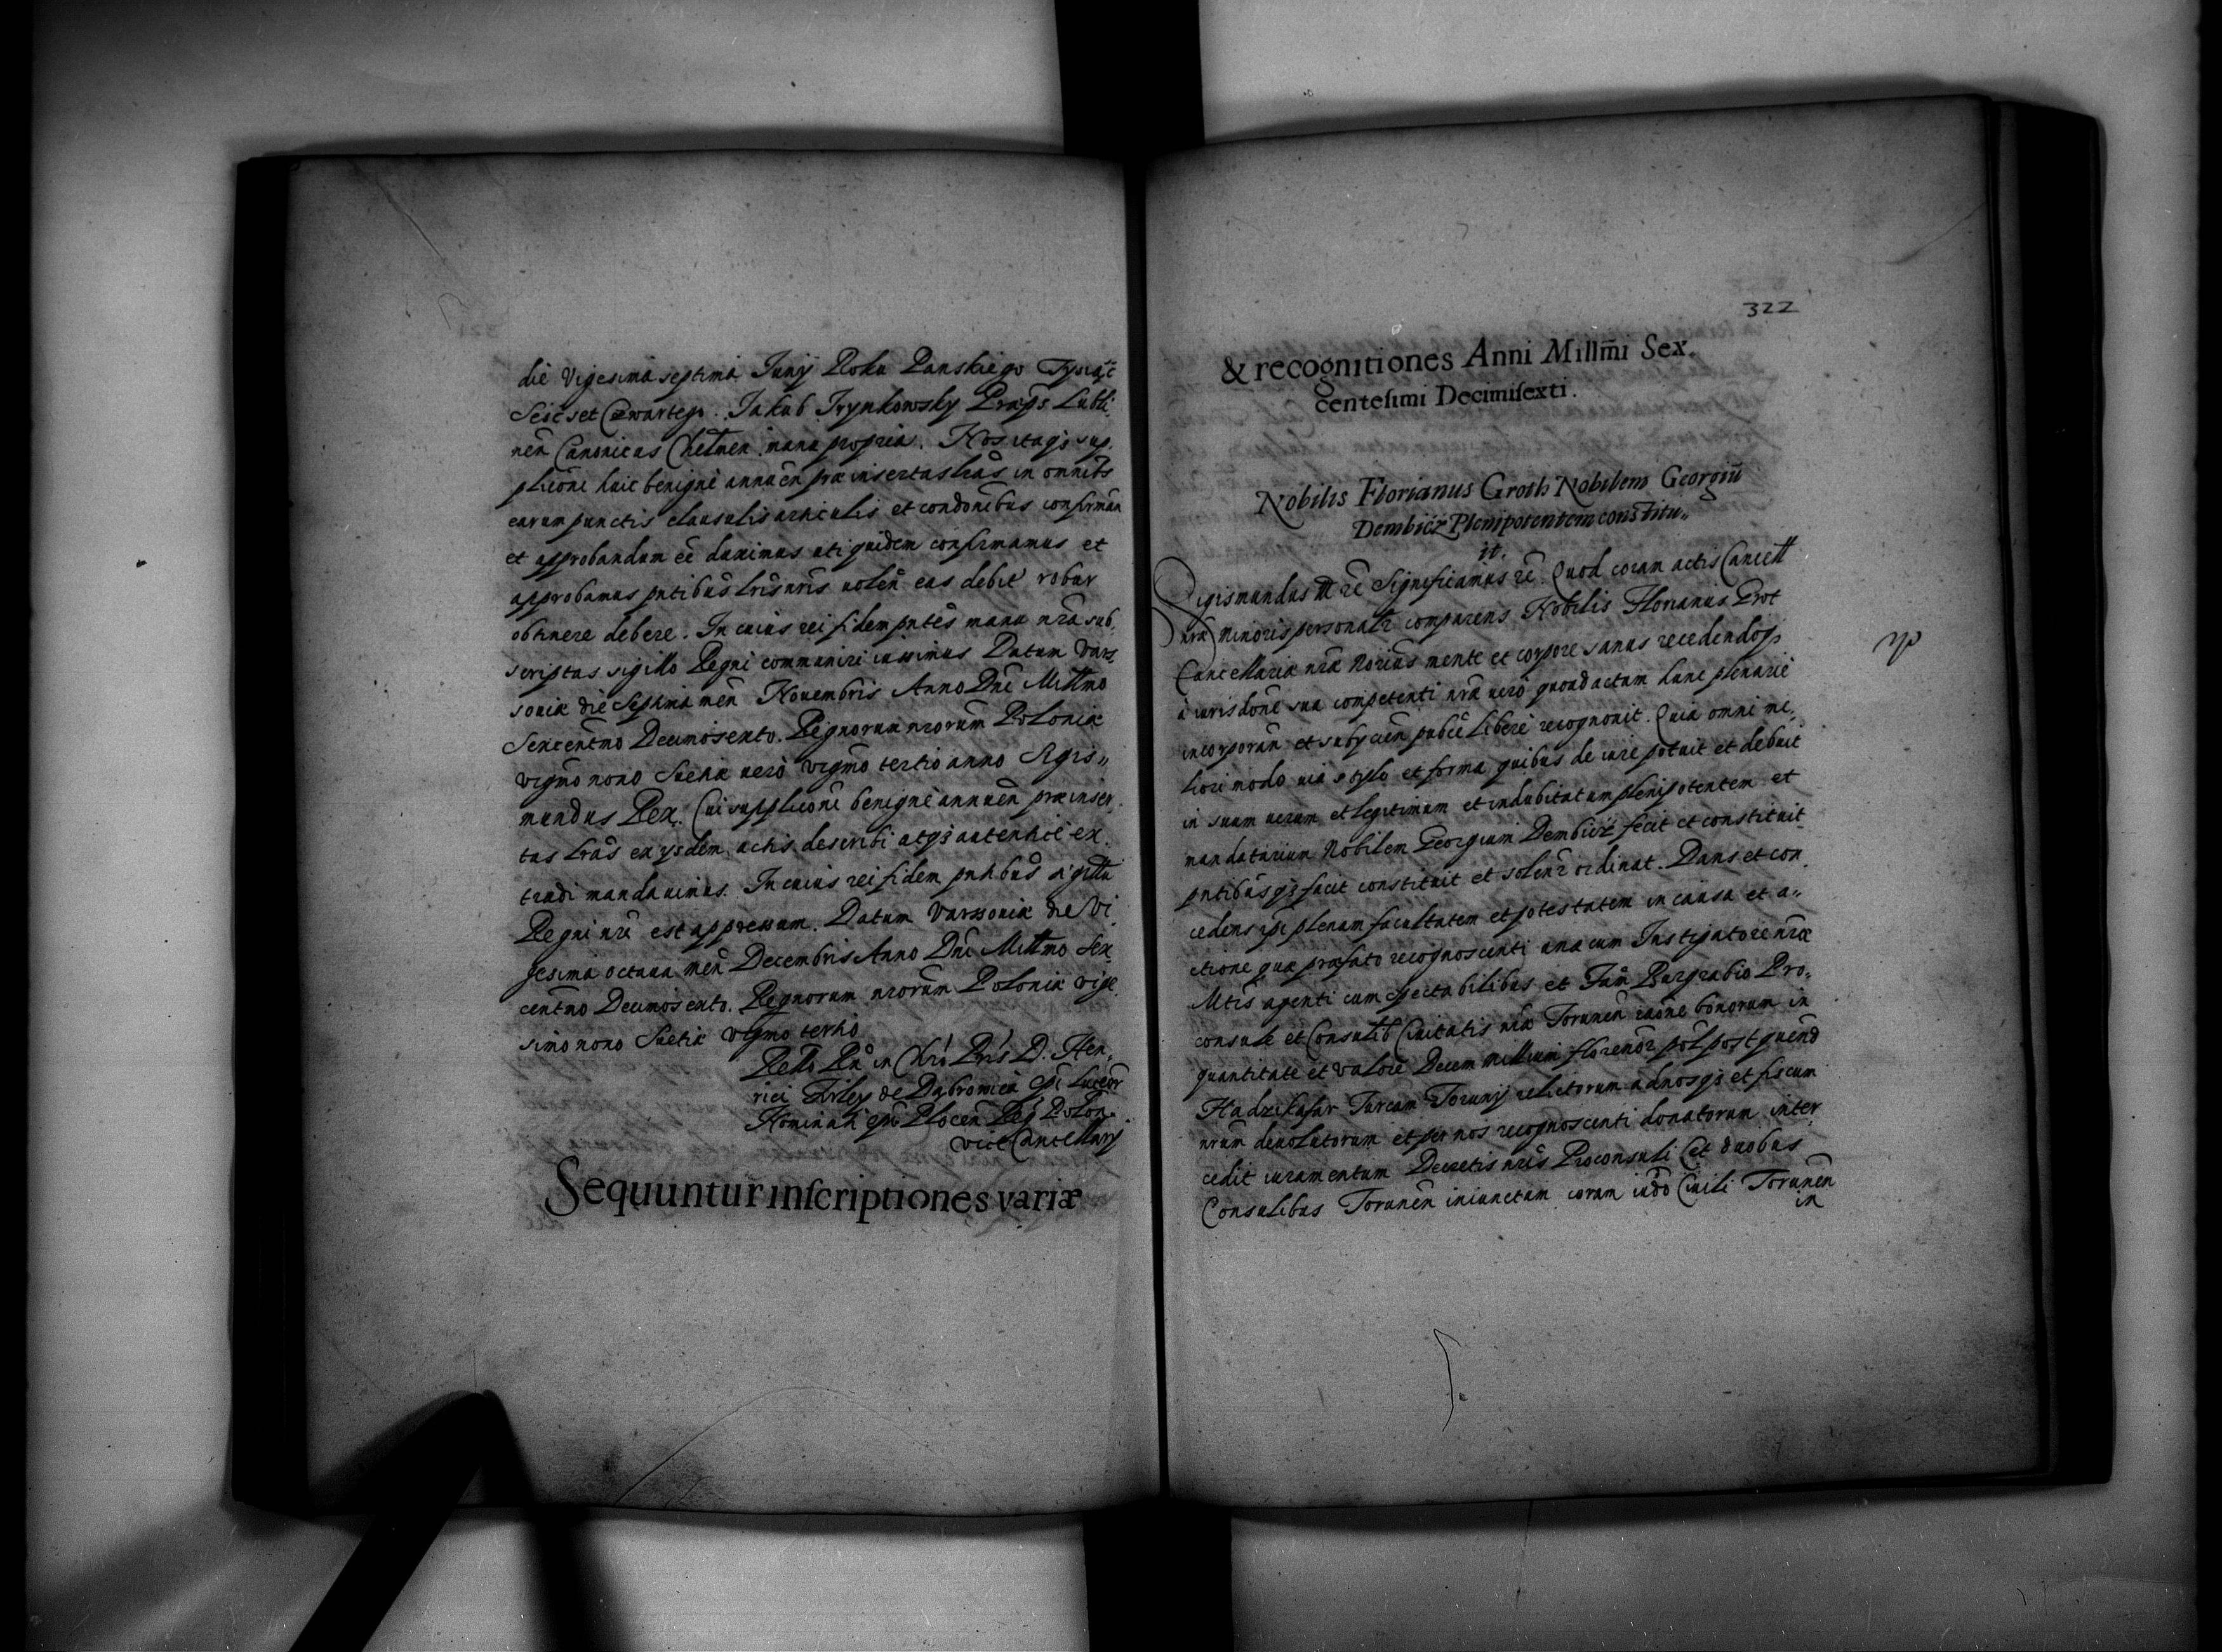 die Vigesima septima Junij Roku Panskiego Tysiąć
Sescset Czwartego. Jakub Trynkowsky Præps Lubli,
nen Canonicus Chelmen manu propria. Nos itaqs sup,
plicōni huic benignè annuen præinsertas lras in omnibs
earum punctis clausulis articulis et condonibus confirman
et approbandum eē duximus uti quidem confirmamus et
approbamus pntibus lris nris uolen eas debit robur
obtinere debere. In cuius rei fidem pntes manu nra sub,
scriptas sigillo Regni communiri iussimus Datum Vars,
souiæ die Septima men Nouembris Anno Dni Millmo
Sexcentmo Decimosexto. Regnorum nrorum Poloniæ
vigmo nono Sueciæ uero vigmo tertio anno Sigis„
mundus Rex. Cui supplicōni benignè annuen præinser,
tas lras ex ysdem actis describi atqs autenticè ex,
tradi mandauimus. In cuius rei fidem pntibus sigillu
Regni nri est appressum. Datum Varssouiæ die Vi
gesima octaua men Decembris Anno Dni Millmo Sex,
centmo Decimosexto. Regnorum nrorum Poloniæ vige
simo nono Suetiæ vigmo tertio
Rello Rn in Chro Pris D. Hen,
rici Firley de Dąbrowica Epi Luceor
Nominati Epi Plocen Reg Polon.
vice Cancellarij
Sequuntur inscriptiones variæ
322
& recognitiones Anni Millm̄i Sex.
centesimi Decimisexti.
Nobilis Florianus Groth Nobilem Georgiū
Dembicz Plenipotentem constitu„
it.
Sigismundus III rē Significamus rē. Quod coram actis Cancell
nræ Minoris personalr comparens Nobilis Florianus Grot
Cancellariæ nræ Norius mente et corpore sanus recedendoqs
à iurisdone sua competenti nra uerò quoad actum hunc plenariè
incorporan et subycien pubcè liberè recognouit. Quia omni me,
liori modo uia stylo et forma quibus de iure potuit et debuit
in suum uerum et legitimum et indubitatum plenipotentem et
mandatarium Nobilem Georgium Dembicz fecit et constituit
pntibusqs facit constituit et solenr ordinat. Dans et con,
cedens ipi plenam facultatem et potestatem in causa et a„
ctione quæ præfato recognoscenti una cum Instigatore nræ
Mtis agenti cum spectabilibus et Fam Burgrabio Pro,
consule et Consulib Ciuitatis nræ Torunen raōne bonorum in
quantitate et valore Decem millium florenor pol post quend
Hadzikafar Turcam Torunij relictorum ad nosqs et fiscum
nrum deuolutorum et per nos recognoscenti donatorum inter
cedit iuramentum Decretis nris Proconsuli et duobus
Consulibus Torunen iniunctum coram iudō Ciuili Torunen
in